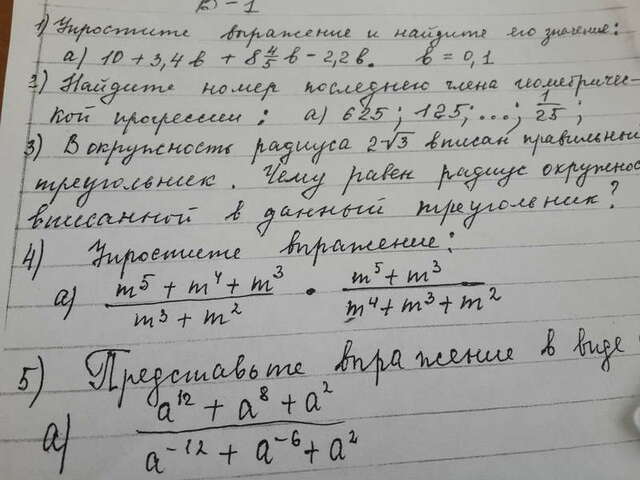 В - 1
1) Упростите выражение и найдите его значение:
а) 10 + 3,4 в + 8 4/5 в - 2,2 в. в = 0,1
2) Найдите номер последнего члена геометричес-
кой прогрессии: а) 625; 125; ...; 1/25;
3) В окружность радиуса 2√3 вписан правильной
треугольник. Чему равен радиус окружнос
вписанной в данный треугольник?
4) Упростите выражение:
а) (m⁵ + m⁴ + m³)/(m³ + m²) • (m⁵ + m³)/(m⁴ + m³ + m²)
5) Представьте выражение в виде
а) (a¹² + a⁸ + a²)/(a⁻¹² + a⁻⁶ + a²)